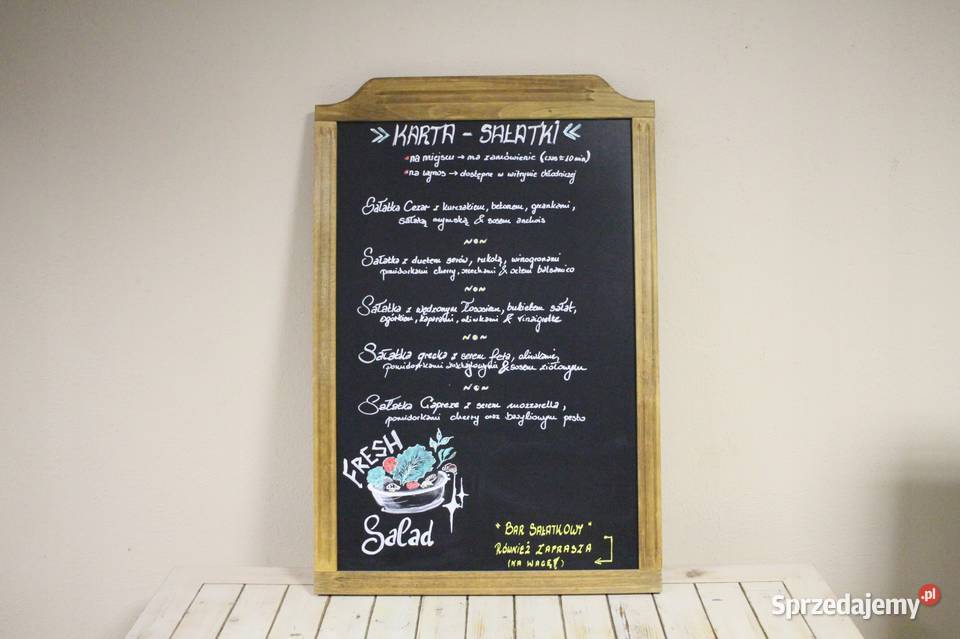 » KARTA - SAŁATKI «
• na miejscu → na zamówienie (czas ≈ 10 min)
• na wynos → dostępne w witrynie chłodniczej
Sałatka Cezar z kurczakiem, bekonem, grzankami,
sałatą rzymską & sosem anchois
Sałatka z duetem serów, rukolą, winogronami
pomidorkami cherry, orzechami & octem balsamico
Sałatka z wędzonym łososiem, bukietem sałat,
ogórkiem, kaparami, oliwkami & vinaigrette
Sałatka grecka z serem feta, oliwkami,
pomidorkami & sosem ziołowym
Sałatka Caprese z serem mozzarella,
pomidorkami cherry oraz bazyliowym pesto
FRESH
Salad
" BAR SAŁATKOWY "
RÓWNIEŻ ZAPRASZA
(NA WAGĘ!)
Sprzedajemy.pl